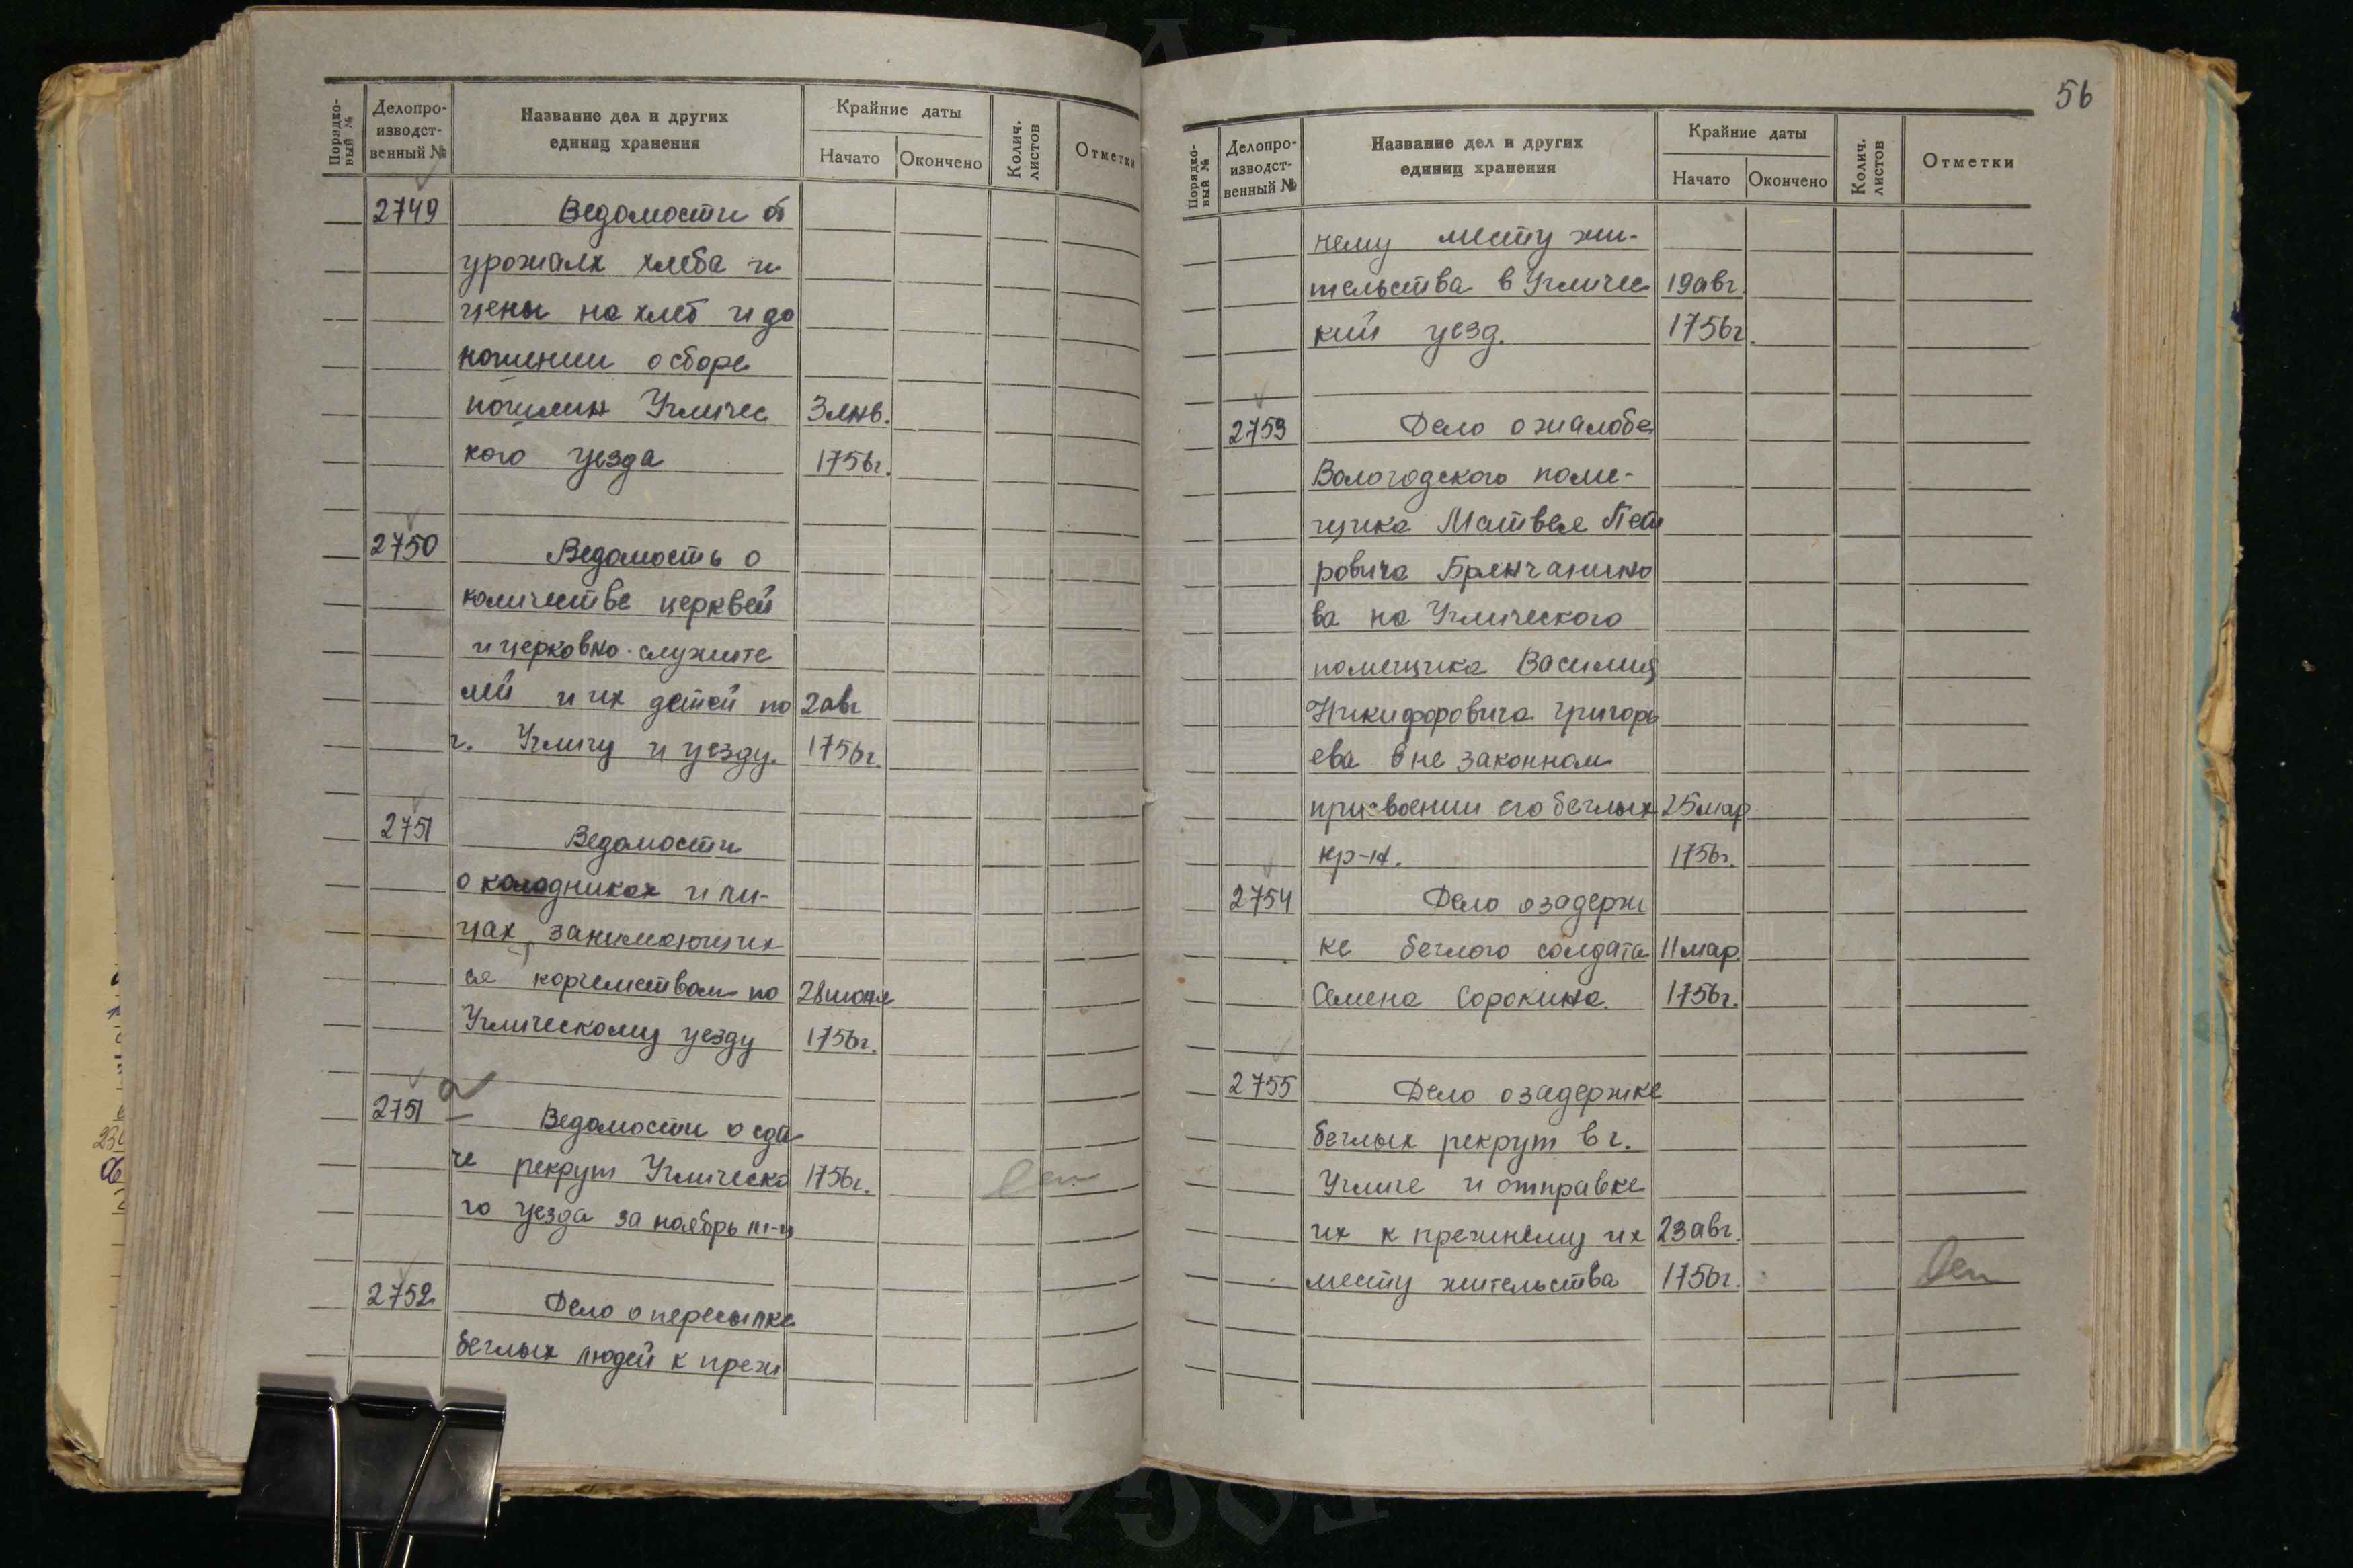 Порядко-
вый №
Делопро-
изводст-
венный №
Название дел и других
единиц хранения
Крайние даты
Начато
Окончено
Колич.
листов
Отметки
2749
Ведомости об
урожаях хлеба и
цены на хлеб и до
ношении о сборе
пошлин Угличес 3 янв.
кого уезда 1756г.
2750
Ведомость о
количестве церквей
и церковно-служите
лей и их детей по 2 авг
г. Угличу и уезду. 1756г.
2751
Ведомости
о колодниках и ли-
цах, занимающих
ся корчемством по 28 июня
Угличскому уезду 1756г.
2751 а
Ведомости о сда
че рекрут Угличско 1756г.
го уезда за ноябрь м-ц
2752
Дело о пересылке
беглых людей к преж
56
Порядко-
вый №
Делопро-
изводст-
венный №
Название дел и других
единиц хранения
Крайние даты
Начато
Окончено
Колич.
листов
Отметки
нему месту жи-
тельства в Угличес 19 авг.
кий уезд. 1756г.
2753
Дело о жалобе
Вологодского поме-
щика Матвея Пет
ровича Брянчанино
ва на Угличского
помещика Василия
Никифоровича Григорь
ева в не законном
присвоении его беглых 25 мар.
кр-н. 1756г.
2754
Дело о задерж
ке беглого солдата 11 мар.
Семена Сорокина. 1756г.
2755
Дело о задержке
беглых рекрут в г.
Угличе и отправке
их к прежнему их 23 авг.
месту жительства 1756г.